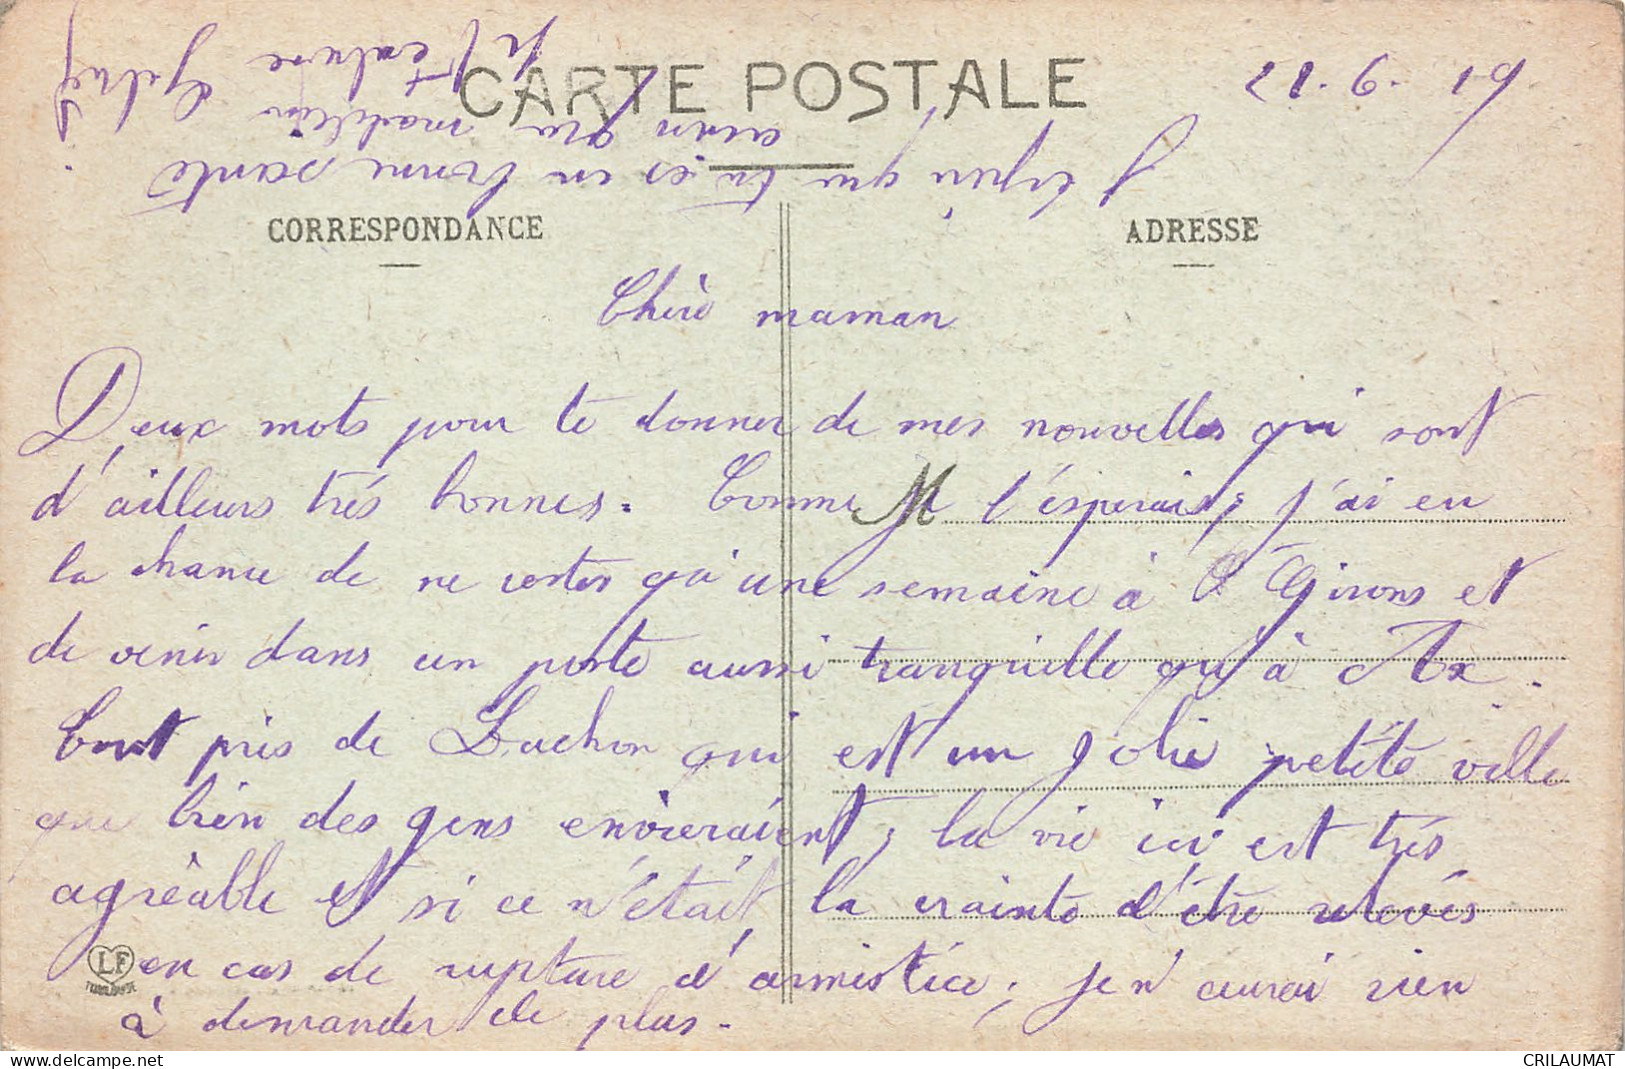 CARTE POSTALE
21.6.19
CORRESPONDANCE
ADRESSE
Chère maman
Deux mots pour te donner de mes nouvelles qui sont
d'ailleurs très bonnes. Comme M je l'espérais, j'ai eu
la chance de ne rester qu'une semaine à St Girons et
de venir dans un poste aussi tranquille qu'à Ax.
Tout près de Luchon qui est un jolie petite ville
que bien des gens envieraient, la vie ici est très
agréable et si ce n'était la crainte d'être relevés
en cas de rupture d'armistice, je n'aurai rien
à demander de plus.
J'espère que tu es en bonne santé
ainsi que
LF
TOULOUSE
CRILAUMAT